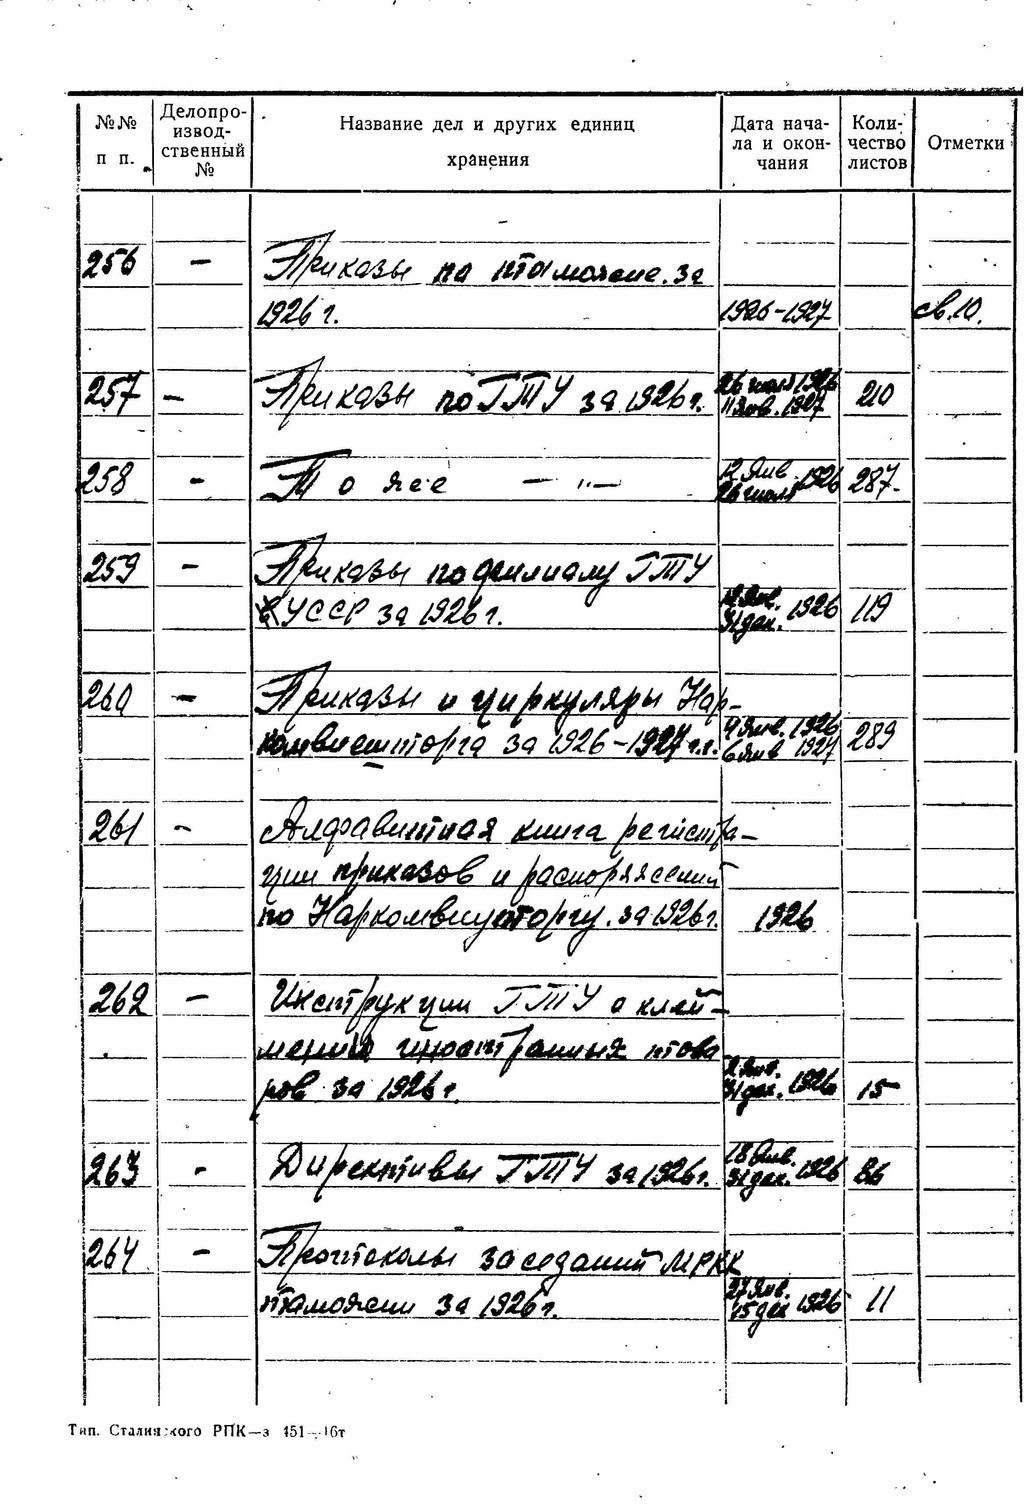 №№ п п.
Делопроизвод-ственный №
Название дел и других единиц хранения
Дата нача-ла и окон-чания
Коли-чество листов
Отметки
256 — Приказы по таможне за
1926 г. 1926-1927 св.10.
257 — Приказы по ГТУ за 1926 г. 26 июля 1926 11 янв. 1927 210
258 — То же — " — 12 янв. 26 июля 1926 287
259 — Приказы по филиалу ГТУ
УССР за 1926 г. 31 дек. 1926 119
260 — Приказы и циркуляры Нар-
комвнешторга за 1926-1927 г.г. 4 янв. 1926 6 янв 1927 289
261 — Алфавитная книга регистра-
ции приказов и распоряжений
по Наркомвнуторгу за 1926 г. 1926
262 — Инструкции ГТУ о клей-
мении иностранных това
ров за 1926 г. 2 янв. 31 дек. 1926 15
263 - Директивы ГТУ за 1926 г. 18 янв. 31 дек. 1926 86
264 — Протоколы заседаний МРКК
таможни за 1926 г. 27 янв. 15 дек 1926 11
Тип. Сталинского РПК—з 451—